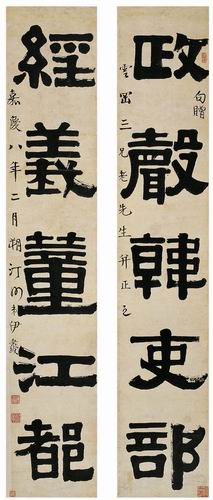 句贈
政聲韓吏部
雲三兄老先生并正之
經義董江都
嘉慶八年二月朔汀州伊秉綬